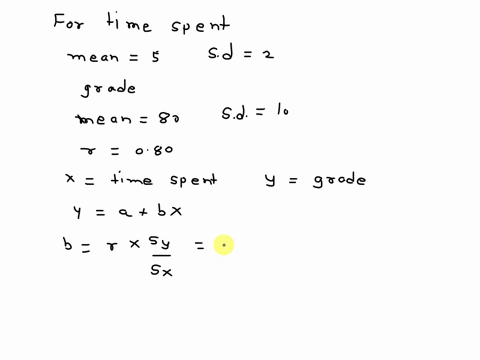 For time spent
mean = 5 s.d = 2
grade
mean = 80 s.d. = 10
r = 0.80
x = time spent y = grade
y = a + bx
b = r × sy/sx =